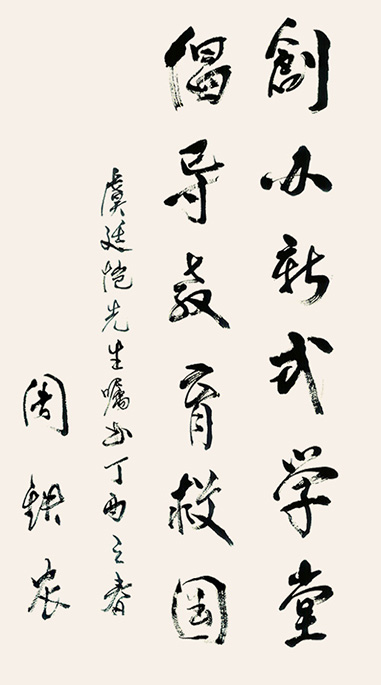 創办新式学堂
倡导教育救国
虞廷恺先生嘱书丁酉之春
周铁农